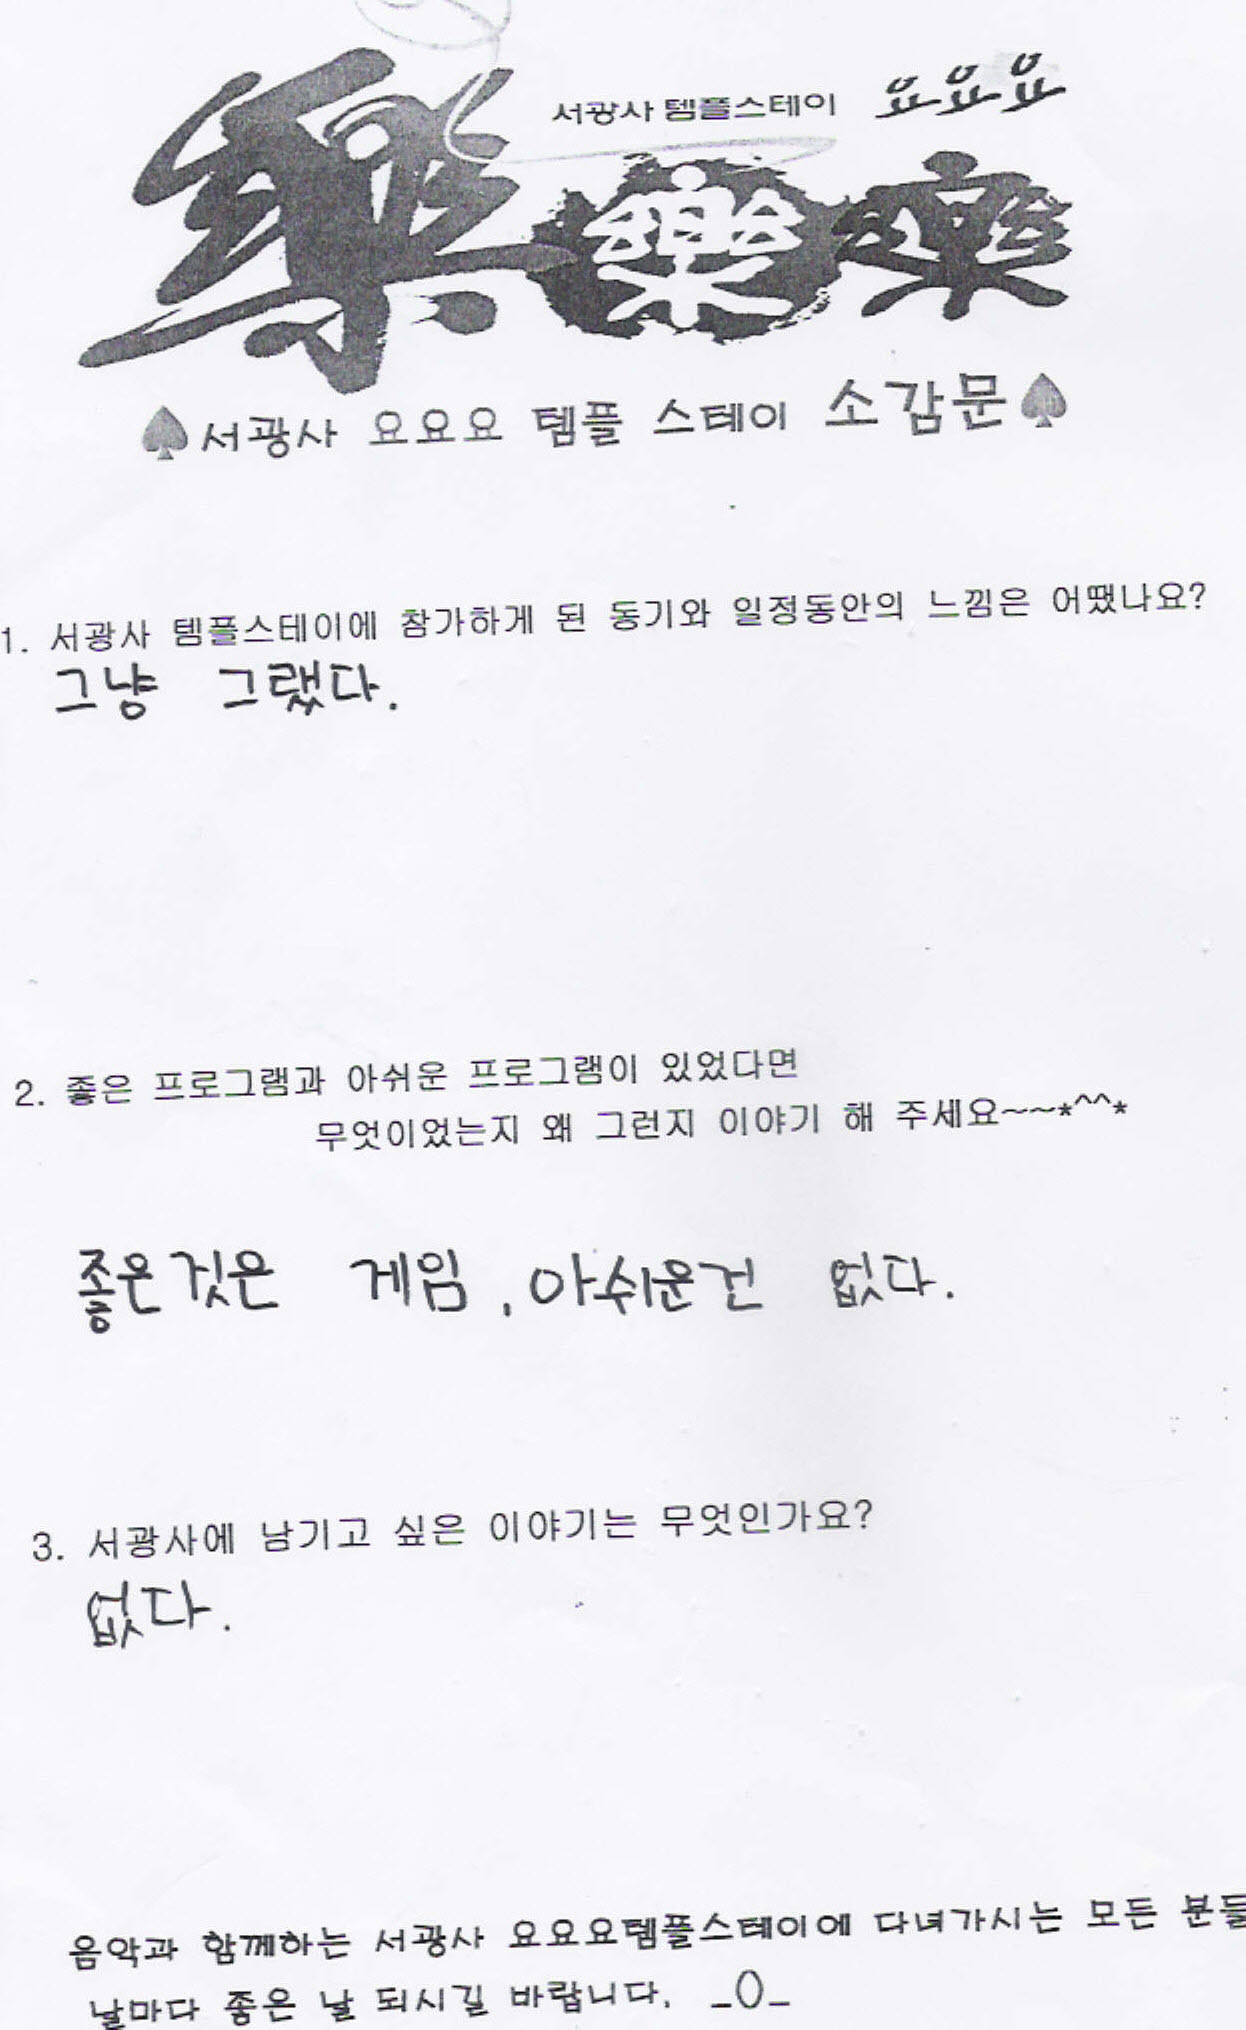 서광사 템플스테이 요요요
樂 樂 樂
♠서광사 요요요 템플 스테이 소감문♠
1. 서광사 템플스테이에 참가하게 된 동기와 일정동안의 느낌은 어땠나요?
그냥 그랬다.
2. 좋은 프로그램과 아쉬운 프로그램이 있었다면
무엇이었는지 왜 그런지 이야기 해 주세요~~*^^*
좋은것은 게임, 아쉬운건 없다.
3. 서광사에 남기고 싶은 이야기는 무엇인가요?
없다.
음악과 함께하는 서광사 요요요템플스테이에 다녀가시는 모든 분들
날마다 좋은 날 되시길 바랍니다. _()_